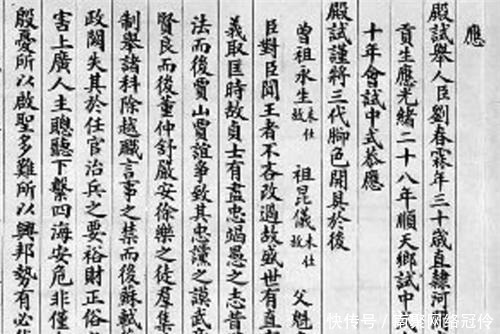 應
殿試舉人臣劉春霖年三十歲直隸河
貢生應光緒二十八年順天鄉試中
十年會試中式恭應
殿試謹將三代腳色開具於後
曾祖永生 未仕 故 祖昆儀 未仕 故 父魁
臣對臣聞王者不吝改過故盛世有直
義取匡時故貞士有盡忠竭愚之志昔
法而後賈山賈誼爭致其忠讜之謨武
賢良而後董仲舒嚴安徐樂之徒群集
制舉諸科除越職言事之禁而後蘇軾
政闕失其於任官治兵之要裕財正俗
害上廣人主聰聽下繫四海安危非僅
殷憂所以啟聖多難所以興邦勢有必
快传号